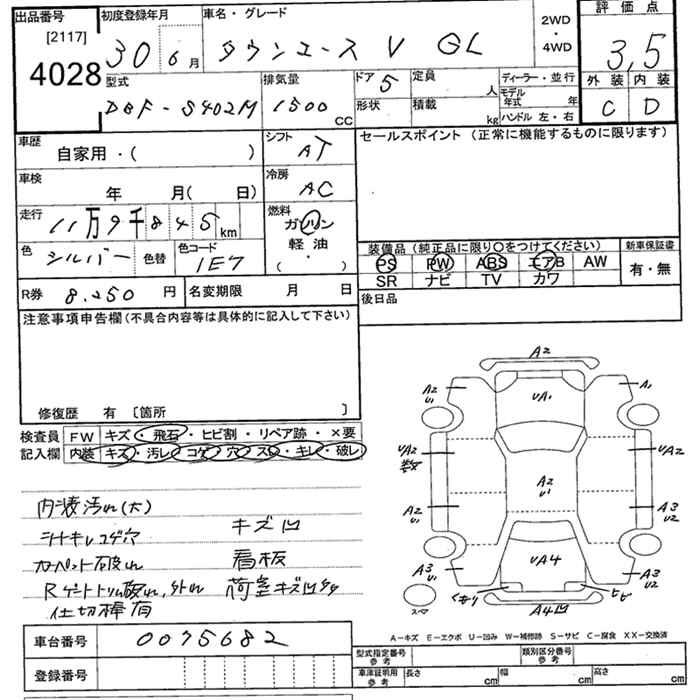 出品番号 初度登録年月 車名・グレード 2WD・4WD 評価点
[2117]
4028 30 6月 タウンエース V GL 3,5
型式 排気量 ドア 5 定員 人 ディーラー・並行 外装 内装
DBF-S402M 1500 CC 形状 積載 kg モデル年式 年 C D
ハンドル 左・右
車歴 シフト セールスポイント(正常に機能するものに限ります)
自家用・( ) AT
車検 冷房
年 月( 日) AC
走行 燃料
11万9千845km ガソリン
軽油
・
( )
色 シルバー 色替 色コード 1E7
装備品(純正品に限り○をつけてください) 新車保証書
PS PW ABS エアB AW 有・無
SR ナビ TV カワ
R券 8.250 円 名変期限 月 日 後日品
注意事項申告欄(不具合内容等は具体的に記入して下さい)
修復歴 有 〔箇所 〕
検査員 FW キズ・飛石・ヒビ割・リペア跡・×要
記入欄 内装 キズ・汚レ・コゲ・穴・スレ・キレ・破レ
内装汚れ(大)
シートキレコゲ穴 キズ凹
カーペット破れ 看板
Rゲートトリム破れ,外れ 荷室キズ凹
仕切棒有
A2
A2 U1 UA1 A1
UA2 UA2
A2 U1
A2 U1 A3 U2
A3 U1 UA4 A3 U2
スペア ヒビ
A4凹
A-キズ E-エクボ U-凹み W-補修跡 S-サビ C-腐食 XX-交換済
車台番号 0075682
登録番号
型式指定番号 参考 類別区分番号 参考
車庫証明用 参考 長さ cm 幅 cm 高さ cm